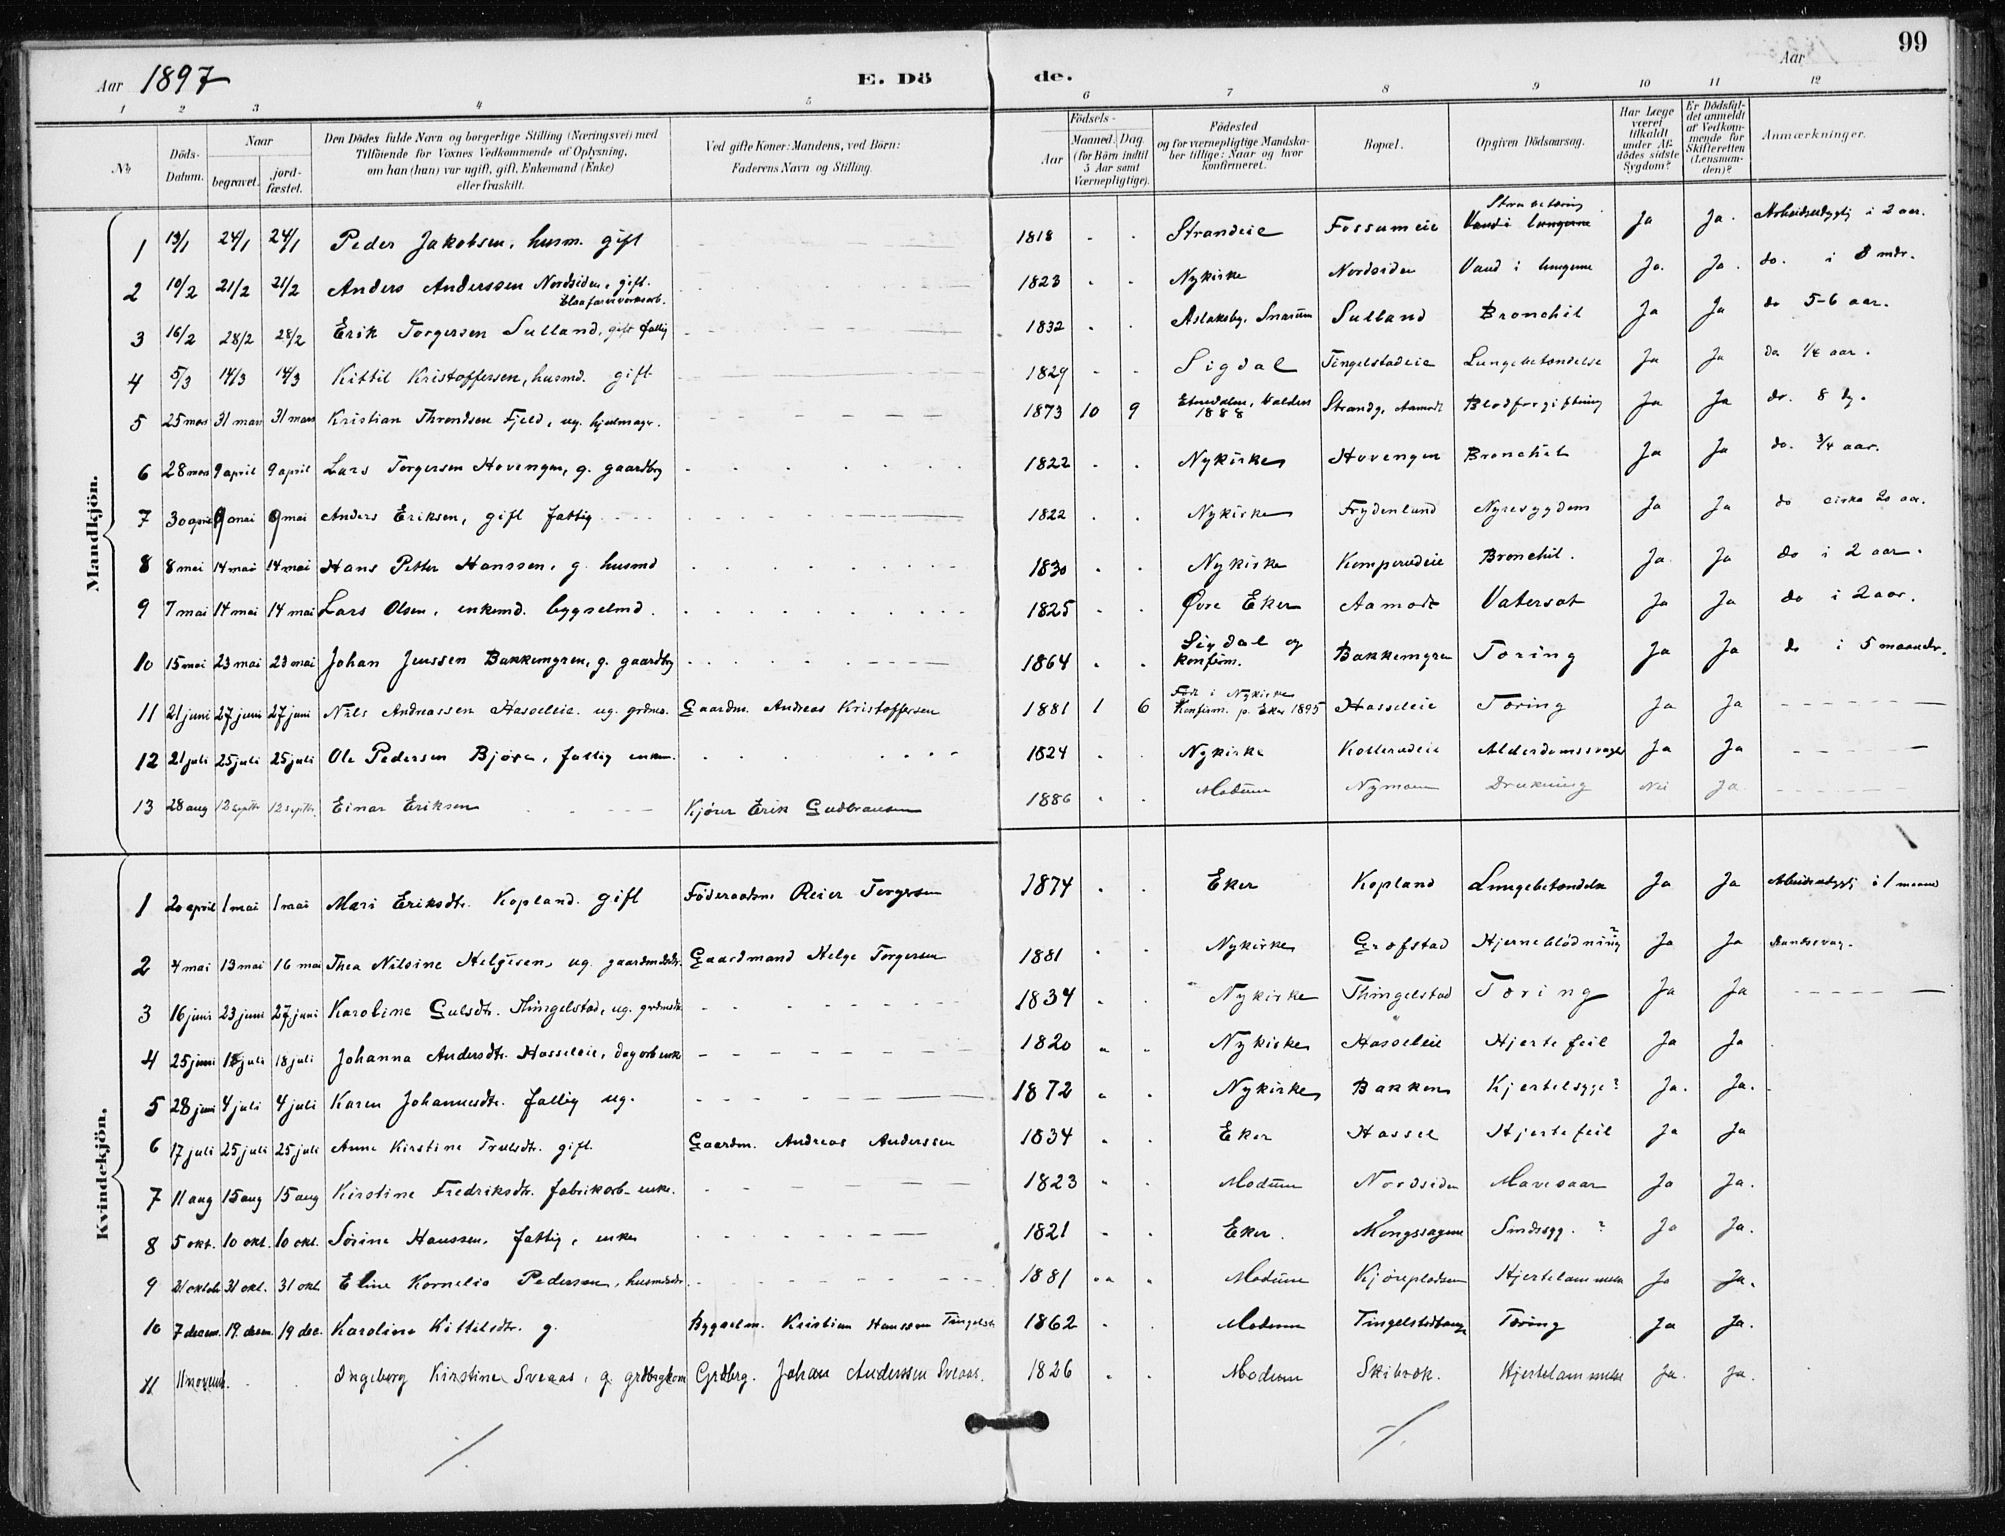 99
Aar 1897 E. Dö de. Aar
1 2 3 4 5 6 7 8 9 10 11 12
№ Döds-Datum. Naar begravet. jord-fæstet. Den Dödes fulde Navn og borgerlige Stilling (Næringsvei) med Tilföiende for Voxnes Vedkommende af Oplysning, om han (hun) var ugift, gift, Enkemand (Enke) eller fraskilt. Ved gifte Koner: Mandens, ved Börn: Faderens Navn og Stilling. Födsels- Aar Maaned. Dag (for Börn indtil 5 Aar samt Værnepligtige). Födested og for værnepligtige Mandskaber tillige: Naar og hvor konfirmeret. Bopæl. Opgiven Dödsaarsag. Har Læge været tilkaldt under Afdödes sidste Sygdom? Er Dödsfaldet anmeldt af Vedkommende for Skifteretten (Lensmanden)? Anmærkninger.
Mandkjön.
1 13/1 24/1 24/1 Peder Jakobsen, husm. gift 1818 Strandeie Fossumeie Vand i lungerne Ja Ja. Arbeidsudygtig i 2 aar.
2 10/2 21/2 21/2 Anders Anderssen Nordsiden, gift. 1823 Nykirke Nordsiden Vand i lungerne Ja. Ja. do. i 8 mdr.
3 16/2 28/2 28/2 Erik Torgersen Sulland, gift fattig 1832 Aslaksby, Snarum Sulland Bronchit Ja Ja do 5-6 aar.
4 5/3 14/3 14/3 Kittil Kristoffersen, husmd. gift 1829 Sigdal Tingelstadeie Lungebetændelse Ja Ja do 1/4 aar.
5 25 mars 31 mars 31 mars Kristian Throndsen Fjeld, ug. hjulmagr. 1873 10 9 Etnedalen, Valders 1888 Strandg, Aamodt Blodforgiftning Ja Ja do. 8 dg.
6 28 mars 9 april 9 april Lars Torgersen Hovengen, g. gaardbg 1822 Nykirke Hovengen Bronchit Ja Ja do. 3/4 aar.
7 30 april 9 mai 9 mai Anders Eriksen, gift fattig 1822 Nykirke Frydenlund Nyresygdom Ja Ja do cirka 20 aar.
8 8 mai 14 mai 14 mai Hans Petter Hanssen, g. husmd 1830 Nykirke Komperudeie Bronchit. Ja Ja do i 2 aar.
9 7 mai 14 mai 14 mai Lars Olsen, enkemd. bygselmd. 1825 Øvre Eker Aamodt Vatersot Ja Ja do i 2 aar.
10 15 mai 23 mai 23 mai Johan Jenssen Bakkemgren, g. gaardbg 1864 Sigdal og konfirm. Bakkemgren Tæring Ja Ja do i 5 maaneder.
11 21 juni 27 juni 27 juni Nils Andreassen Hasseleie. ug. grdms. Gaardm. Andreas Kristoffersen 1881 1 6 Født i Nykirke Konfirm. p. Eker 1895 Hasseleie Tæring Ja Ja
12 21 juli 25 juli 25 juli Ole Pedersen Bjøre, fattig enkem. 1824 Nykirke Kollerudeie Alderdomssvaghed Ja Ja
13 28 aug 12 septbr 12 septbr. Einar Eriksen Kjører Erik Gudbransen 1886 Modum Nymoen Drukning Nei Ja
Kvindekjön.
1 20 april 1 mai 1 mai Mari Eriksdtr. Kopland. gift Føderaadsm. Reier Torgersen 1874 Eker Kopland Lungebetændelse Ja Ja Arbeidsudygtig i 1 maaned
2 4 mai 13 mai 16 mai Thea Nilsine Helgesen, ug. gaardmdsdtr. Gaardmand Helge Torgersen 1881 Nykirke Grøfstad Hjerneblödning? Ja Ja Aandssvag.
3 16 juni 23 juni 27 juni Karoline Gulsdtr. Thingelstad, ug. grdmsdtr. 1834 Nykirke Thingelstad Tæring Ja Ja
4 25 juni 18 juli 18 juli Johanna Andersdtr. Hasseleie, dagarb. enke 1820 Nykirke Hasseleie Hjertefeil Ja Ja
5 28 juni 4 juli 4 juli Karen Johannesdtr. fattig ug. 1872 Nykirke Bakken Kjertelsyge? Ja. Ja.
6 17 juli 25 juli 25 juli Anne Kirstine Trulsdtr. gift. Gaardm. Andreas Anderssen 1834 Eker Hassel Hjertefeil Ja Ja
7 11 aug 15 aug 15 aug Kirstine Fredriksdtr. fabrikarb. enke. 1823 Modum Nordsiden Mavesaar Ja Ja.
8 5 okt. 10 okt. 10 okt. Sørine Hanssen, fattig, enke 1821 Eker. Mongssagene Sindssyg. ? Ja Ja.
9 21 oktob 31 okt. 31 okt Eline Kornelia Pedersen, husmdsdtr. 1881 Modum Kjørepladsen Hjertelammelse Ja Ja.
10 7 decem. 19. decem. 19 dec. Karoline Kittilsdtr. g. Bygselm. Kristian Hanssen Tingelst. 1862 Modum Tingelstadhaug Tæring Ja Ja.
11 11 novemb. Ingeborg Kirstine Sveaas, g. grdbrgkone Grdbrg. Johan Anderssen Sveaas. 1826 Modum Skibrek. Hjertelammelse Ja. Ja.